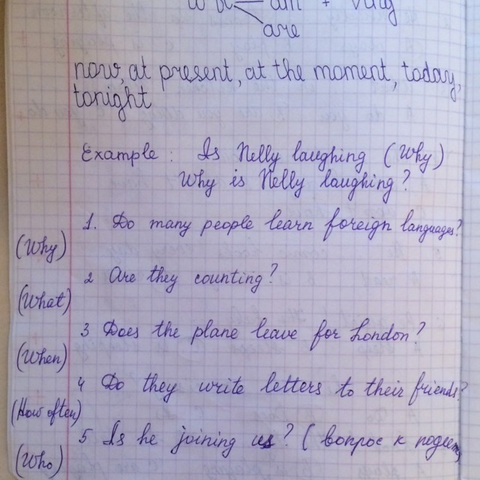 am + Ving
are
now, at present, at the moment, today,
tonight
Example : Is Nelly laughing (Why)
Why is Nelly laughing?
1. Do many people learn foreign languages?
(Why)
2 Are they counting?
(What)
3 Does the plane leave for London?
(When)
4 Do they write letters to their friends?
(How often)
5 Is he joining us? ( вопрос к
(Who)